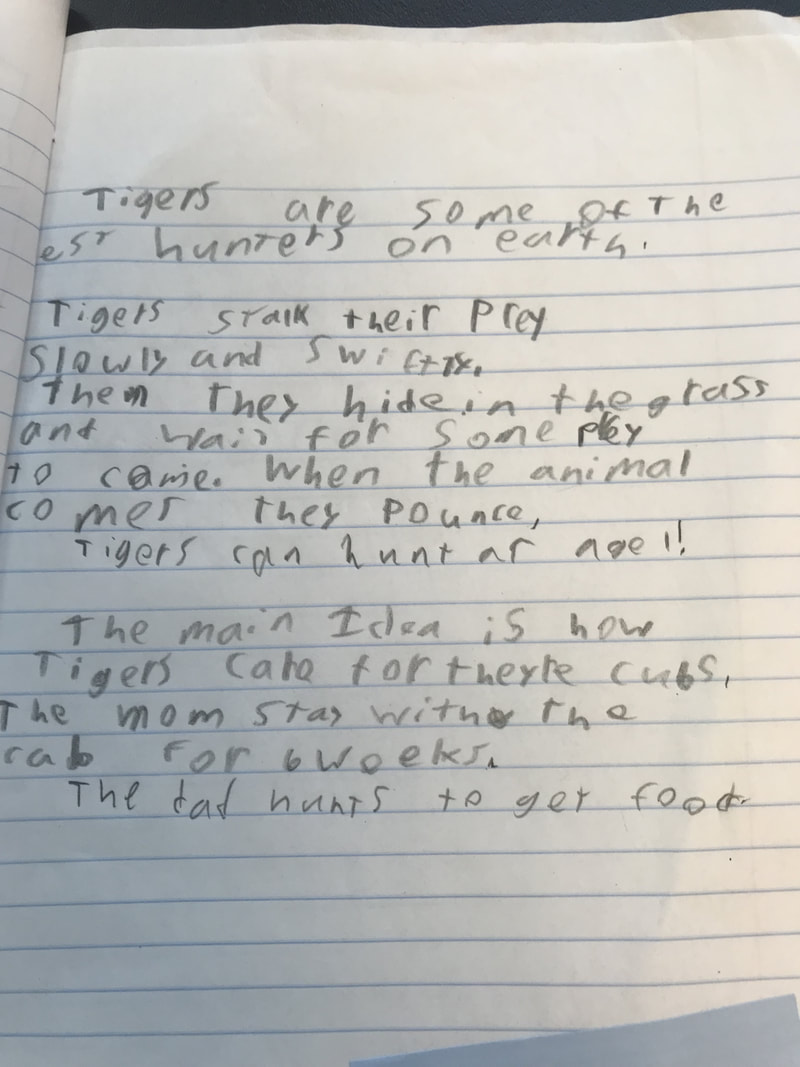 Tigers are some of The
est hunters on earth.
Tigers stalk their Prey
Slowly and Swiftly.
Then They hide in the grass
and wait for some prey
to came. When the animal
comes they pounce,
Tigers can hunt at age 1!
The main Idea is how
Tigers care for theyre cubs,
The mom stay with the
cab for 6 weeks.
The dad hunts to get food.